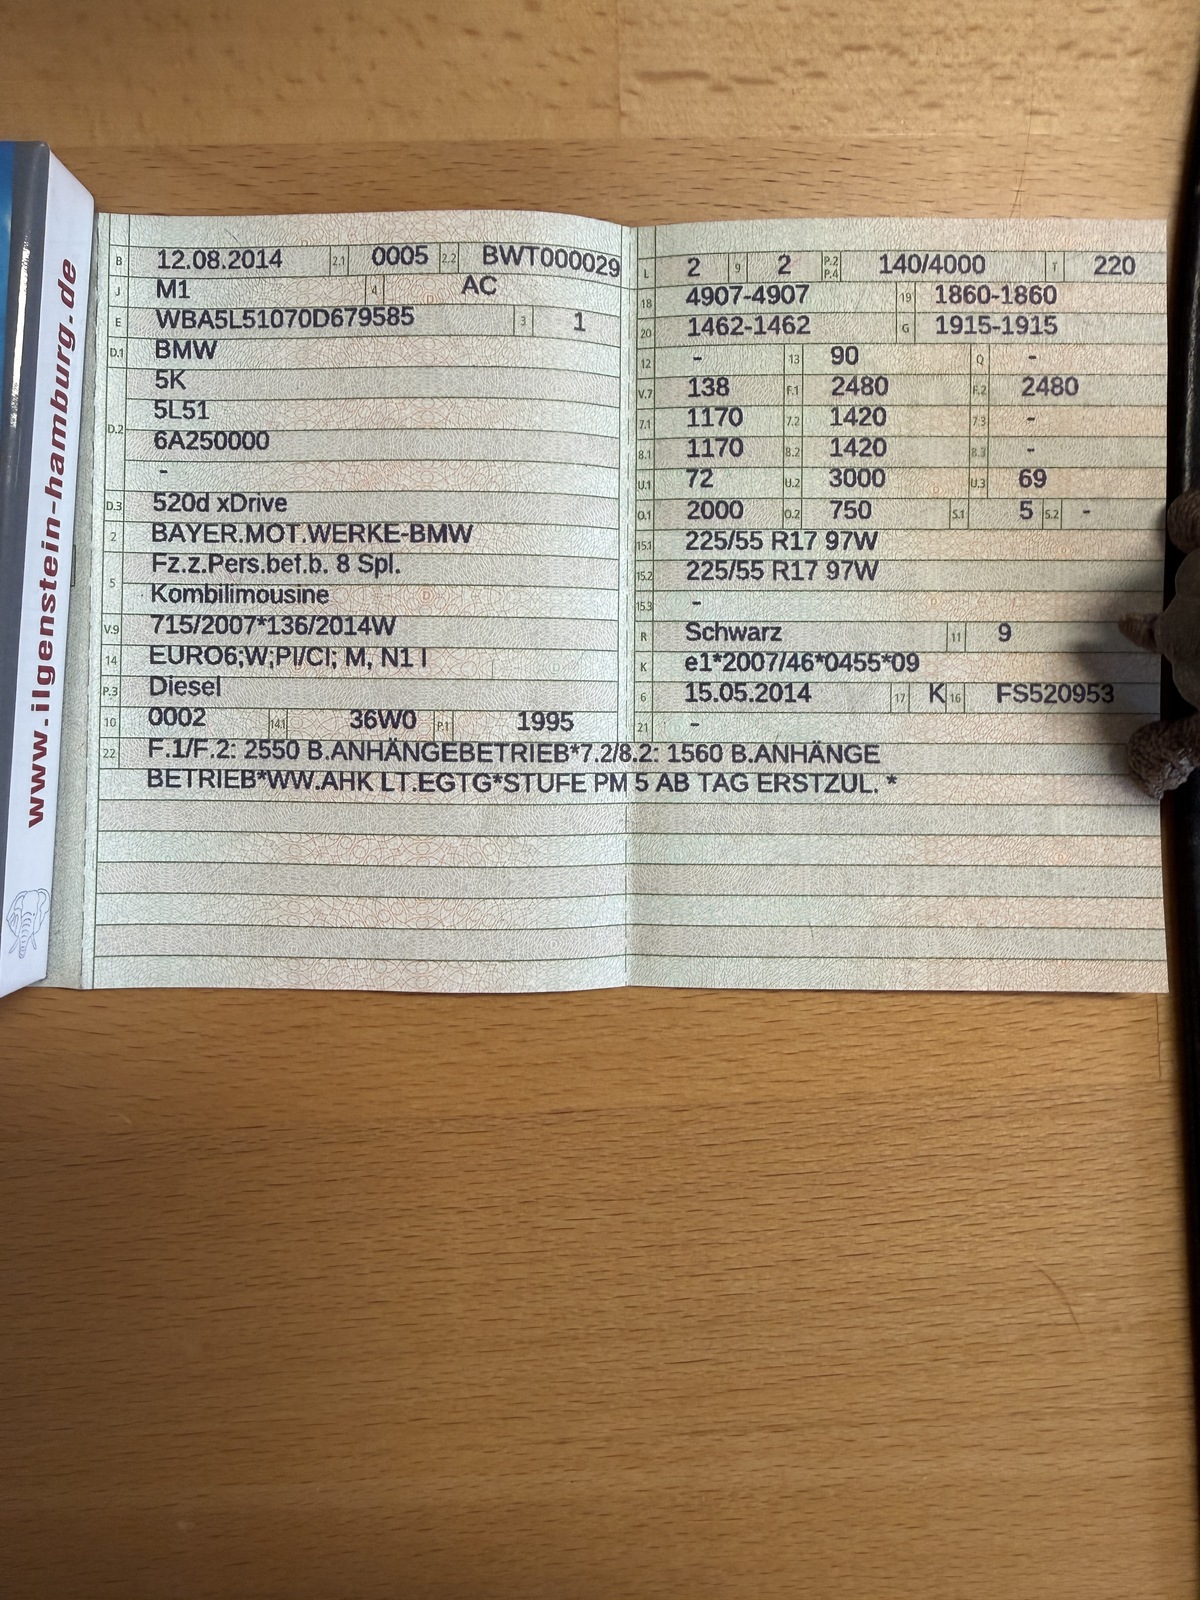 www.ilgenstein-hamburg.de
B 12.08.2014 2.1 0005 2.2 BWT000029
J M1 4 AC
E WBA5L51070D679585 3 1
D.1 BMW
5K
5L51
D.2
6A250000
-
D.3 520d xDrive
2 BAYER.MOT.WERKE-BMW
Fz.z.Pers.bef.b. 8 Spl.
5
Kombilimousine
V.9 715/2007*136/2014W
14 EURO6;W;PI/CI; M, N1 I
P.3 Diesel
10 0002 14.1 36W0 P.1 1995
L 2 9 2 P.2 P.4 140/4000 T 220
18 4907-4907 19 1860-1860
20 1462-1462 G 1915-1915
12 - 13 90 Q -
V.7 138 F.1 2480 F.2 2480
7.1 1170 7.2 1420 7.3 -
8.1 1170 8.2 1420 8.3 -
U.1 72 U.2 3000 U.3 69
O.1 2000 O.2 750 S.1 5 S.2 -
15.1 225/55 R17 97W
15.2 225/55 R17 97W
15.3 -
R Schwarz 11 9
K e1*2007/46*0455*09
6 15.05.2014 17 K 16 FS520953
21 -
22 F.1/F.2: 2550 B.ANHÄNGEBETRIEB*7.2/8.2: 1560 B.ANHÄNGE
BETRIEB*WW.AHK LT.EGTG*STUFE PM 5 AB TAG ERSTZUL. *